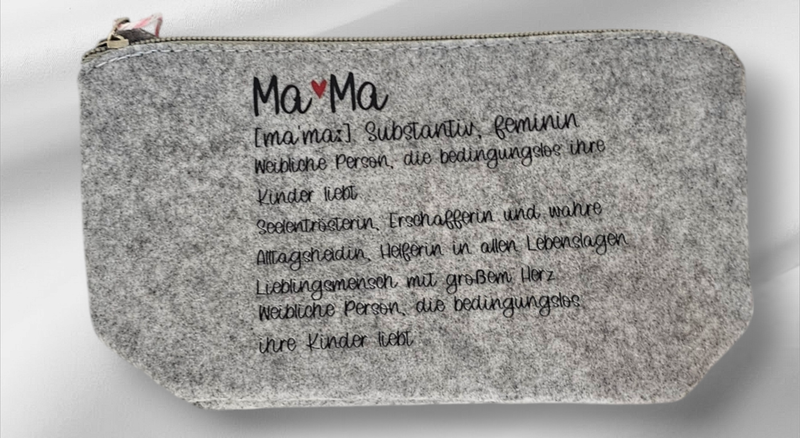 Ma♥Ma
[ma'ma:] Substantiv, feminin
Weibliche Person, die bedingungslos ihre
Kinder liebt
Seelentrösterin, Erschafferin und wahre
Alltagsheldin, Helferin in allen Lebenslagen
Lieblingsmensch mit großem Herz
Weibliche Person, die bedingungslos
ihre Kinder liebt